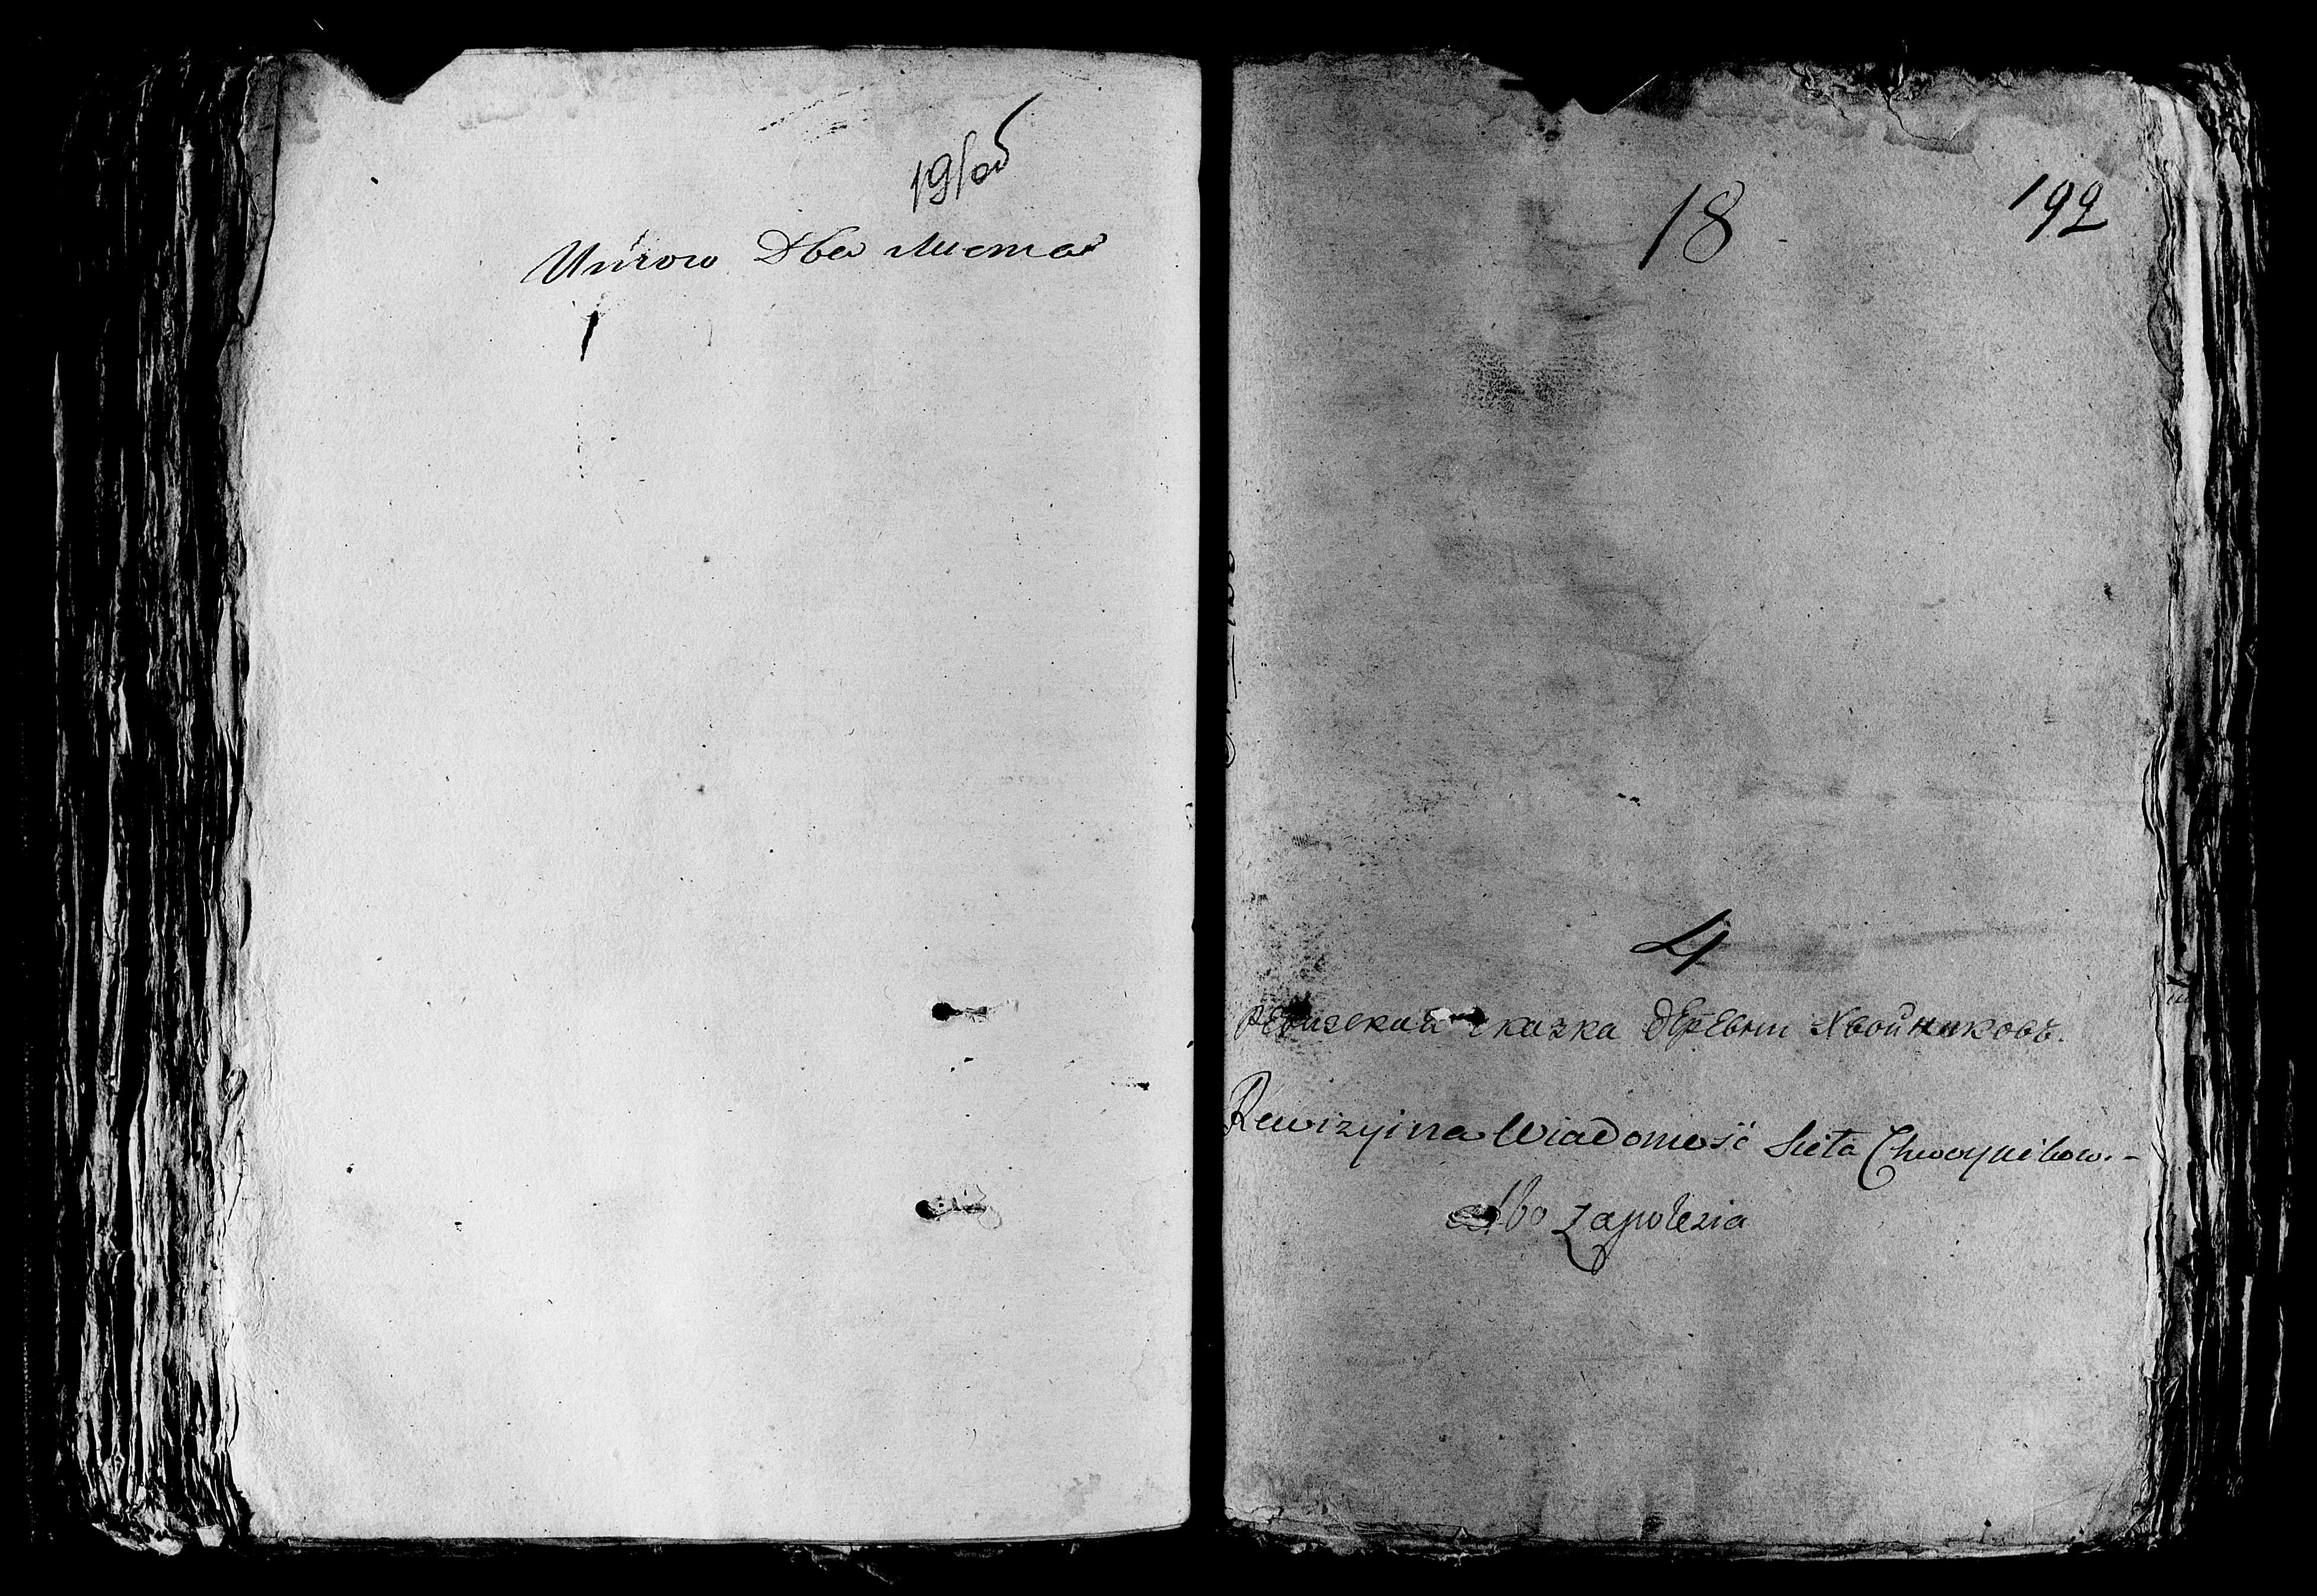 191об
Итого Два листа
18
192
4
Ревизская сказка деревни Хвойниковъ.
Rewizyina Wiadomość Sieła Chwoynikow.-
albo Zapolezia